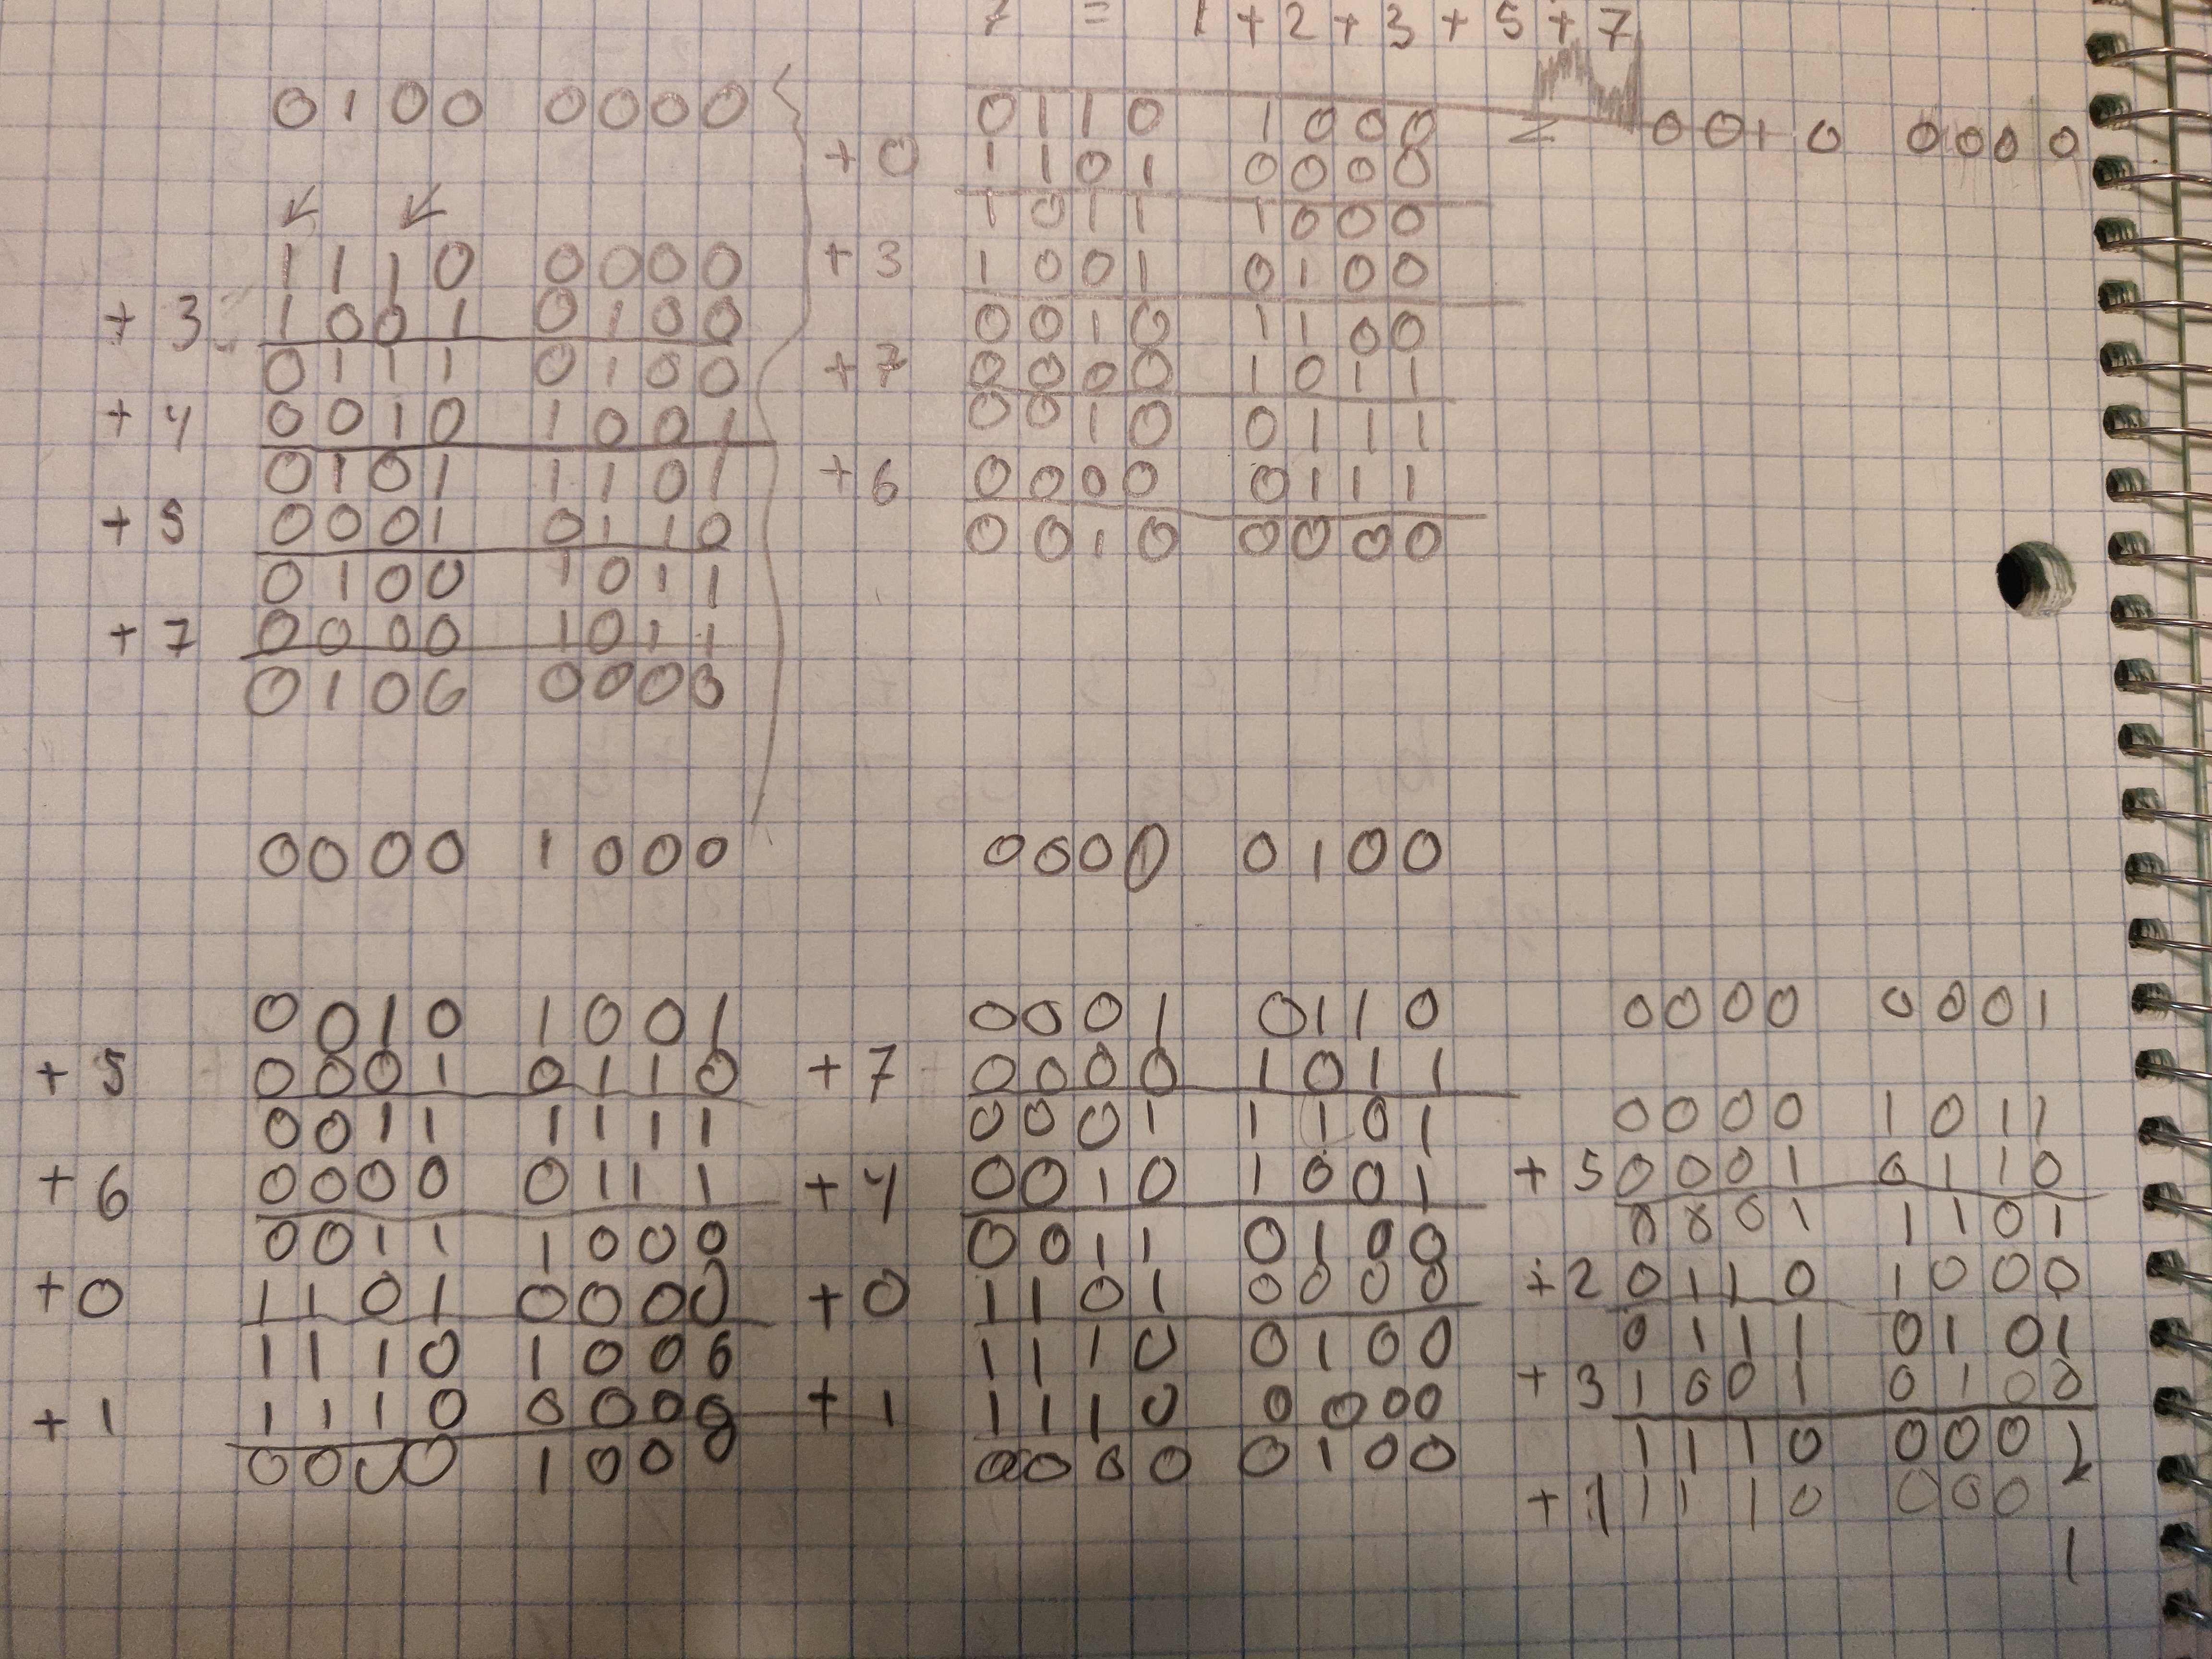 7 = 1 + 2 + 3 + 5 + 7
0100 0000
1110 0000
+ 3 1001 0100
0111 0100
+ 4 0010 1001
0101 1101
+ 5 0001 0110
0100 1011
+ 7 0000 1011
0100 0000
0110 1000 = 0010 0000
+ 0 1101 0000
1011 1000
+ 3 1001 0100
0010 1100
+ 7 0000 1011
0010 0111
+ 6 0000 0111
0010 0000
0000 1000
0010 1001
+ 5 0001 0110
0011 1111
+ 6 0000 0111
0011 1000
+ 0 1101 0000
1110 1000
+ 1 1110 0000
0000 1000
0000 0100
0001 0110
+ 7 0000 1011
0001 1101
+ 4 0010 1001
0011 0100
+ 0 1101 0000
1110 0100
+ 1 1110 0000
0000 0100
0000 0001
0000 1011
+ 5 0001 0110
0001 1101
+ 2 0110 1000
0111 0101
+ 3 1001 0100
1110 0001
+ 1 1110 000
1